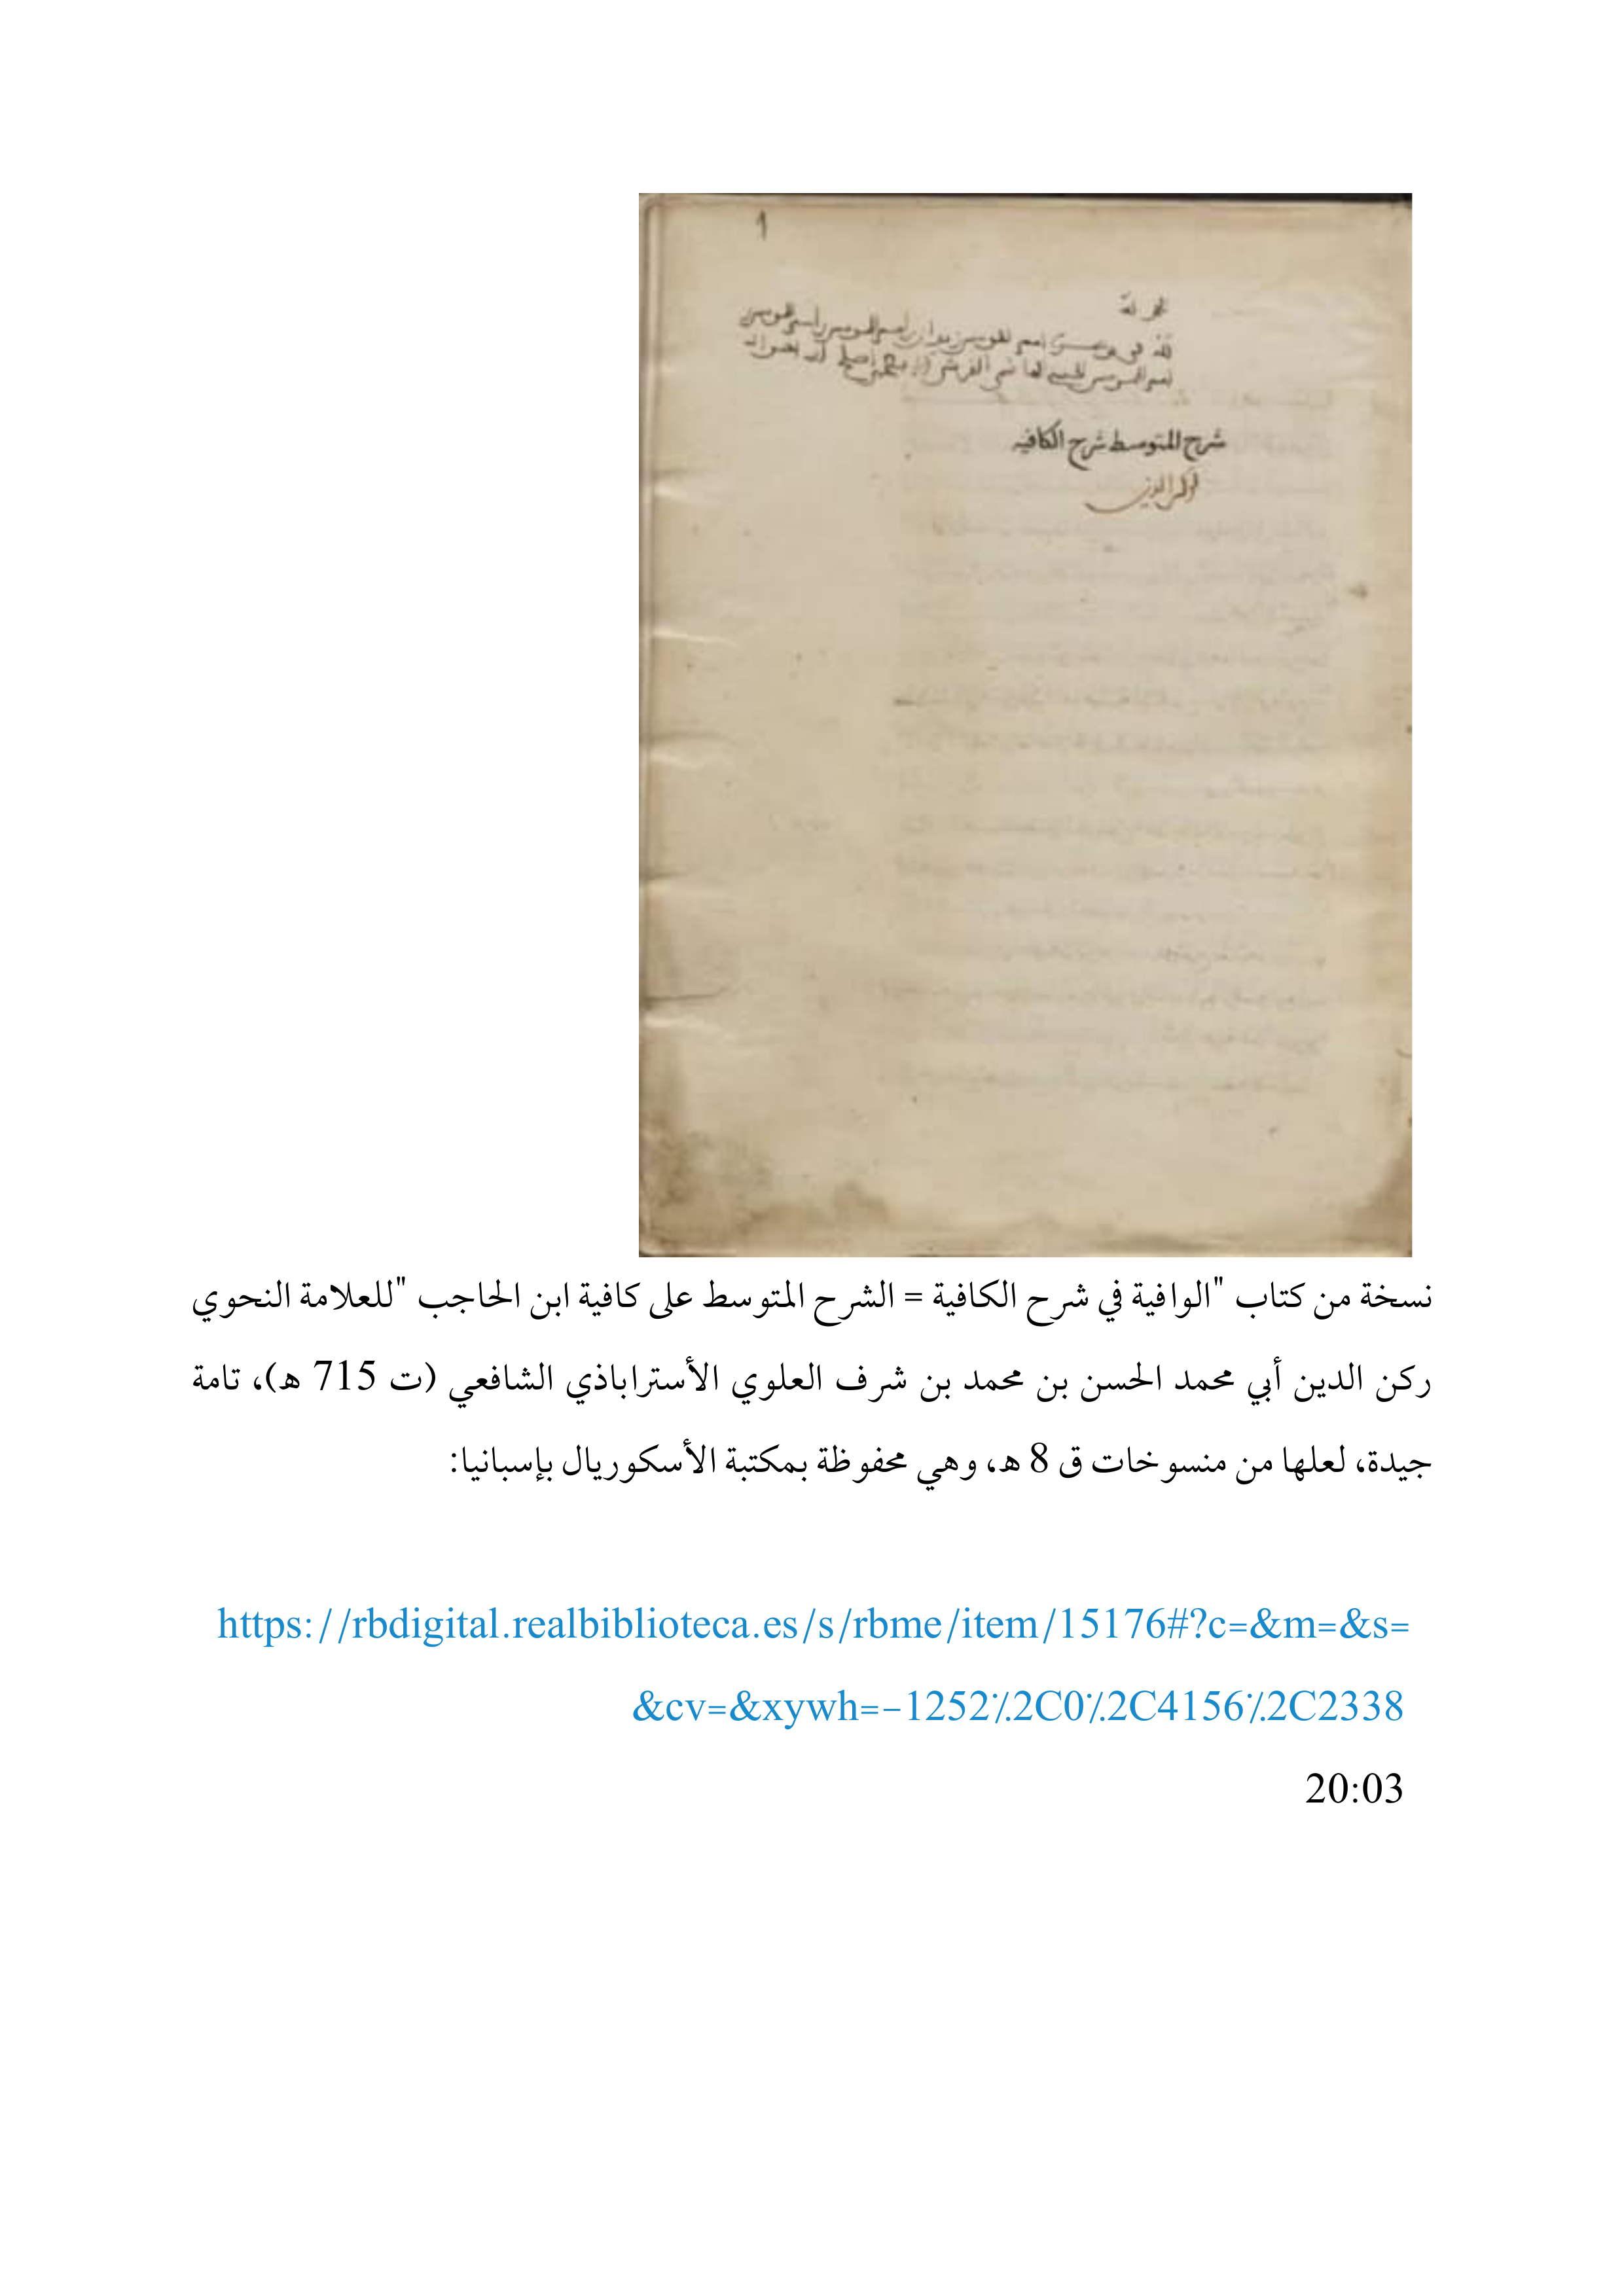 1
الحمد لله
شرح المتوسط شرح الكافيه
لركن الدين
نسخة من كتاب "الوافية في شرح الكافية = الشرح المتوسط على كافية ابن الحاجب "للعلامة النحوي
ركن الدين أبي محمد الحسن بن محمد بن شرف العلوي الأستراباذي الشافعي (ت 715 ه)، تامة
جيدة، لعلها من منسوخات ق 8 ه، وهي محفوظة بمكتبة الأسكوريال بإسبانيا:
https://rbdigital.realbiblioteca.es/s/rbme/item/15176#?c=&m=&s=
&cv=&xywh=-1252%2C0%2C4156%2C2338
20:03